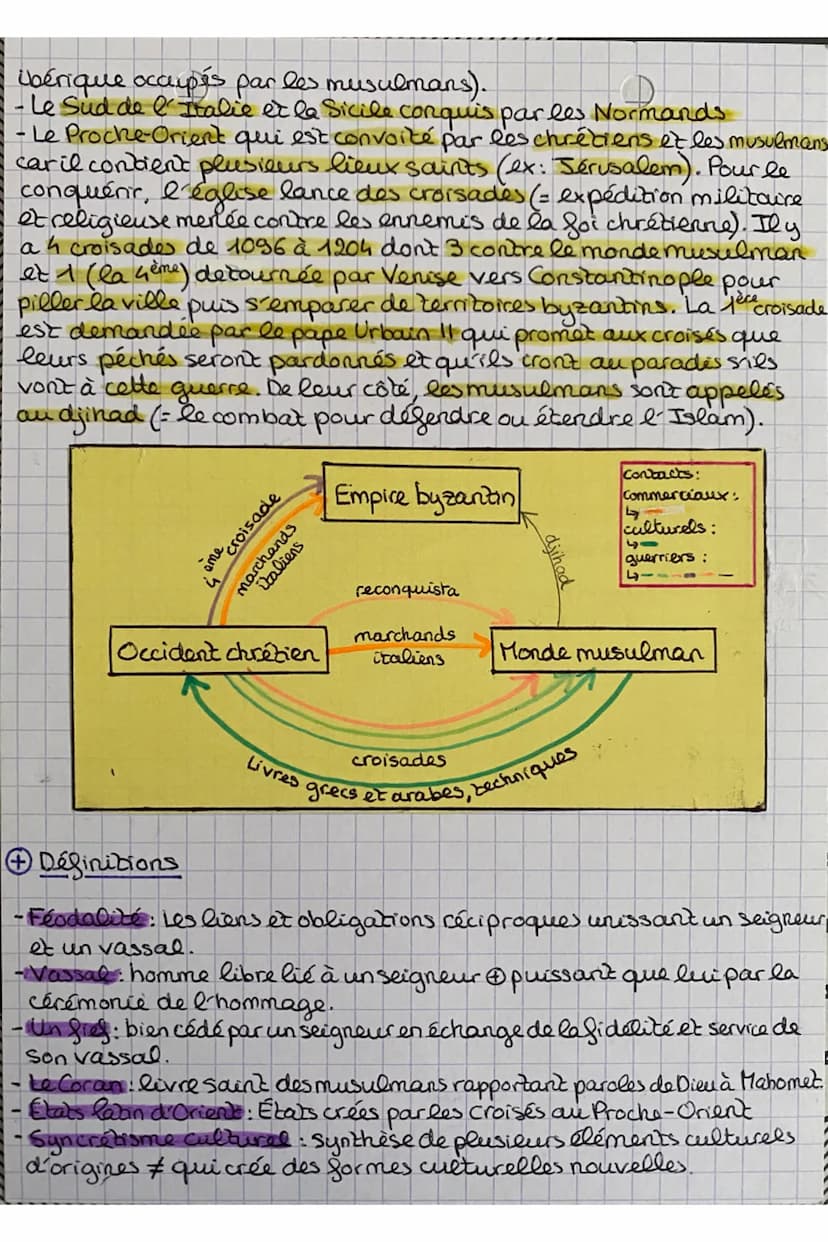 ibérique occupés par les musulmans).
- Le Sud de l'Italie et la Sicile conquis par les Normands
- Le Proche-Orient qui est convoité par les chrétiens et les musulmans
car il contient plusieurs lieux saints (ex: Jérusalem). Pour le
conquérir, l'église lance des croisades (= expédition militaire
et religieuse menée contre les ennemis de la foi chrétienne). Il y
a 4 croisades de 1096 à 1204 dont 3 contre le monde musulman
et 1 (la 4ème) detournée par Venise vers Constantinople pour
piller la ville puis s'emparer de territoires byzantins. La 1ère croisade
est demandée par le pape Urbain II qui promet aux croisés que
leurs péchés seront pardonnés et qu'ils iront au paradis s'ils
vont à cette guerre. De leur côté, les musulmans sont appelés
au djihad (= le combat pour défendre ou étendre l'Islam).
Empire byzantin
contacts:
commerciaux:
↳
culturels:
↳
guerriers:
↳
4ème croisade
marchands
italiens
djihad
reconquista
Occident chrétien
marchands
italiens
Monde musulman
croisades
Livres grecs et arabes, techniques
⊕ Définitions
- Féodalité: Les liens et obligations réciproques unissant un seigneur
et un vassal.
- Vassal: homme libre lié à un seigneur ⊕ puissant que lui par la
cérémonie de l'hommage.
- Un fief: bien cédé par un seigneur en échange de la fidélité et service de
son vassal.
- Le Coran: livre saint des musulmans rapportant paroles de Dieu à Mahomet.
- États latin d'Orient: États crées par les croisés au Proche-Orient
- Syncrétisme culturel: synthèse de plusieurs éléments culturels
d'origines ≠ qui crée des formes culturelles nouvelles.